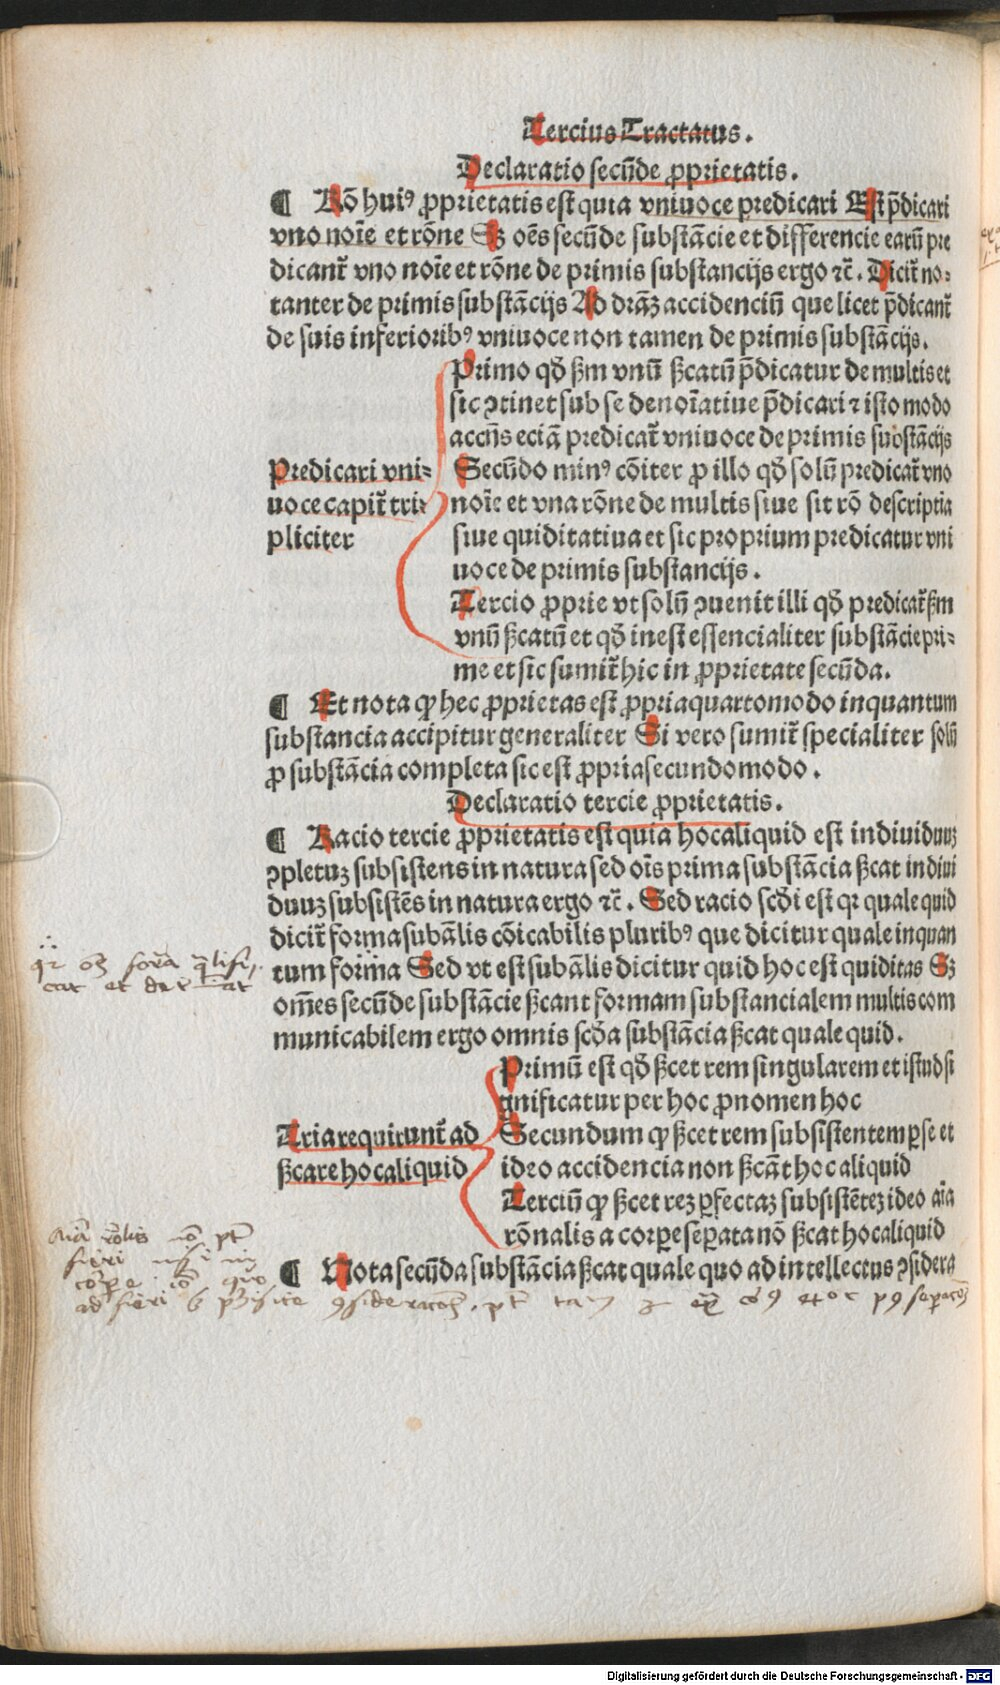 Tercius Tractatus.
Declaratio secūde ꝓprietatis.
¶ Rō huiꝰ ꝓprietatis est quia vniuoce predicari Est p̄dicari
vno noīe et rōne Sꝫ oēs secūde substācie et differencie earū pre
dicant᷑ vno noīe et rōne de primis substancijs ergo ⁊c̄. Dicit᷑ no⸗
tanter de primis substācijs Ad drāꝫ accidenciū que licet p̄dicant᷑
de suis inferioribꝰ vniuoce non tamen de primis substācijs.
Primo qd̄ ẜm vnū ẜcatū p̄dicatur de multis et
sic ꝯtinet sub se denoīatiue p̄dicari ⁊ isto modo
accn̄s eciā predicat᷑ vniuoce de primis substācijs
Predicari vni⸗
uoce capit᷑ tri⸗
pliciter
Secūdo minꝰ cōiter ꝓ illo qd̄ solū predicat᷑ vno
noīe et vna rōne de multis siue sit rō descriptia
siue quiditatiua et sic proprium predicatur vni
uoce de primis substancijs.
Tercio ꝓprie vt solū ꝯuenit illi qd̄ predicat᷑ ẜm
vnū ẜcatū et qd̄ inest essencialiter substācie pri⸗
me et sic sumit᷑ hic in ꝓprietate secūda.
¶ Et nota ꝙ hec ꝓprietas est ꝓpria quarto modo inquantum
substancia accipitur generaliter Si vero sumit᷑ specialiter solū
ꝓ substācia completa sic est ꝓpria secundo modo.
Declaratio tercie ꝓprietatis.
¶ Racio tercie ꝓprietatis est quia hoc aliquid est indiuiduuꝫ
ꝯpletuꝫ subsistens in natura sed oīs prima substācia ẜcat indiui
duuꝫ subsistēs in natura ergo ⁊c̄. Sed racio scd̄i est qꝛ quale quid
dicit᷑ forma subālis cōicabilis pluribꝰ que dicitur quale inquan
tum forma Sed vt est subālis dicitur quid hoc est quiditas Sꝫ
om̄es secūde substācie ẜcant formam substancialem multis com
municabilem ergo omnis scd̄a substācia ẜcat quale quid.
Primū est qd̄ ẜcet rem singularem et istud si
gnificatur per hoc ꝓnomen hoc
Tria requirunt᷑ ad
ẜcare hoc aliquid
Secundum ꝙ ẜcet rem subsistentem ꝑ se et
ideo accidencia non ẜcāt hoc aliquid
Terciū ꝙ ẜcet reꝫ ꝑfectaꝫ subsistēteꝫ ideo aīa
rōnalis a corꝑe seꝑata nō ẜcat hoc aliquid
¶ Nota secūda substācia ẜcat quale quo ad intellectus ꝯsidera
qꝛ oīs forma
cat et
aīa rōlis nō pt̄
fieri nisi in
corꝑe
ad fieri